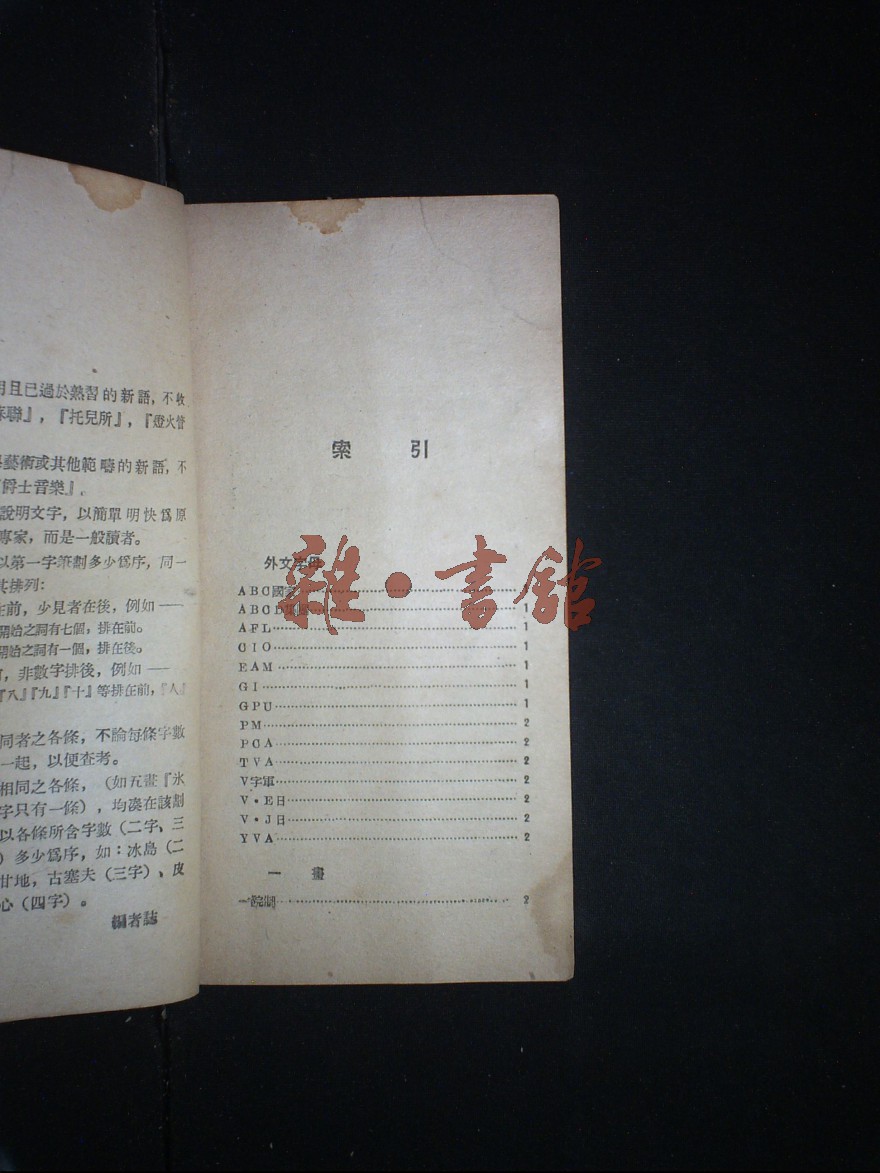 用且已過於熟習的新語，不收
蘇聯』，『托兒所』，『燈火管
藝術或其他範疇的新語，不
爵士音樂』。
說明文字，以簡單明快爲原
專家，而是一般讀者。
以第一字筆劃多少爲序，同一
其排列：
在前，少見者在後，例如——
開始之詞有七個，排在前。
開始之詞有一個，排在後。
，非數字排後，例如——
『八』『九』『十』等排在前，『人』
同者之各條，不論每條字數
一起，以便查考。
相同之各條，（如五畫『氷
字只有一條），均湊在該劃
以各條所含字數（二字、三
）多少爲序，如：冰島（二
甘地，古塞夫（三字）、皮
心（四字）。
編者誌
索引
外文字母
ABC國家
ABCD集團 1
AFL 1
CIO 1
EAM 1
GI 1
GPU 1
PM 2
PCA 2
TVA 2
V字軍 2
V・E日 2
V・J日 2
YVA 2
一畫
一院制 2
雜・書館